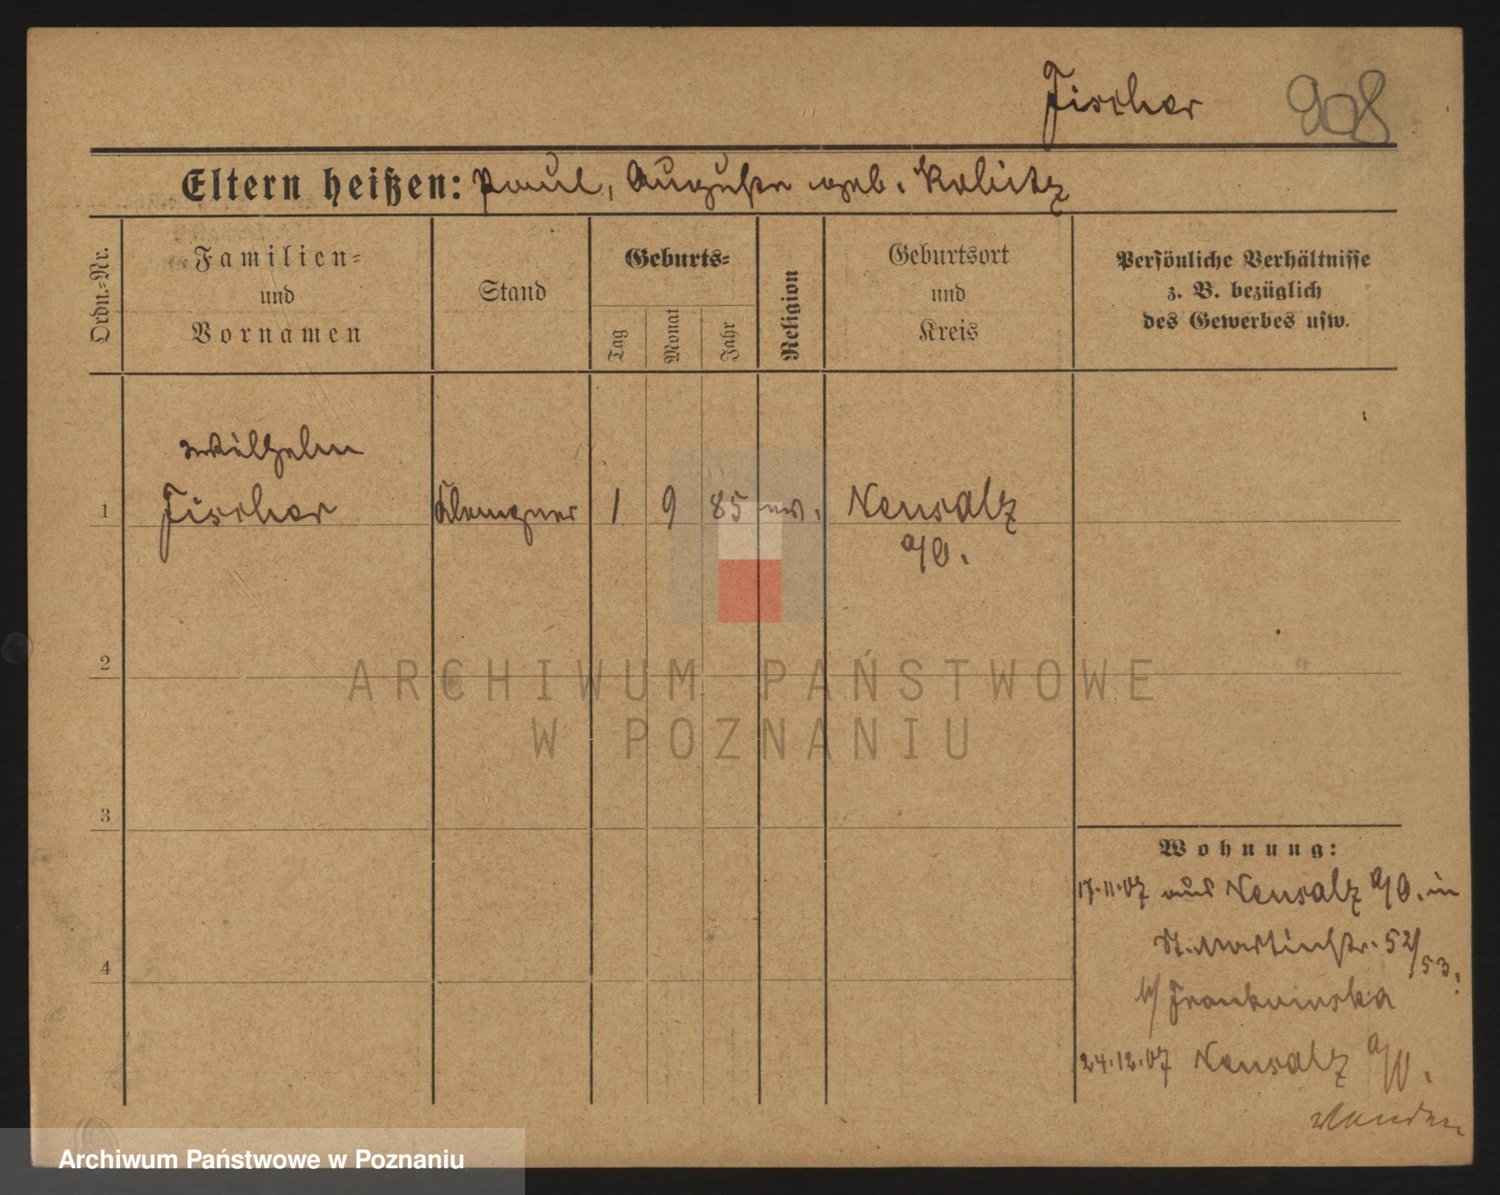 Fischer 908
Eltern heißen: Paul, Auguste geb. Kolietz
Ordn.-Nr.
Familien-
und
Vornamen
Stand
Geburts-
Tag
Monat
Jahr
Religion
Geburtsort
und
Kreis
Persönliche Verhältnisse
z. B. bezüglich
des Gewerbes usw.
Wilhelm
1 Fischer Klempner 1 9 85 ev. Neusalz
a/O.
2
ARCHIWUM PAŃSTWOWE
W POZNANIU
3
Wohnung:
17.11.07 aus Neusalz a/O. in
St. Martinstr. 52/53.
4
b/
24.12.07 Neusalz a/O.
Archiwum Państwowe w Poznaniu